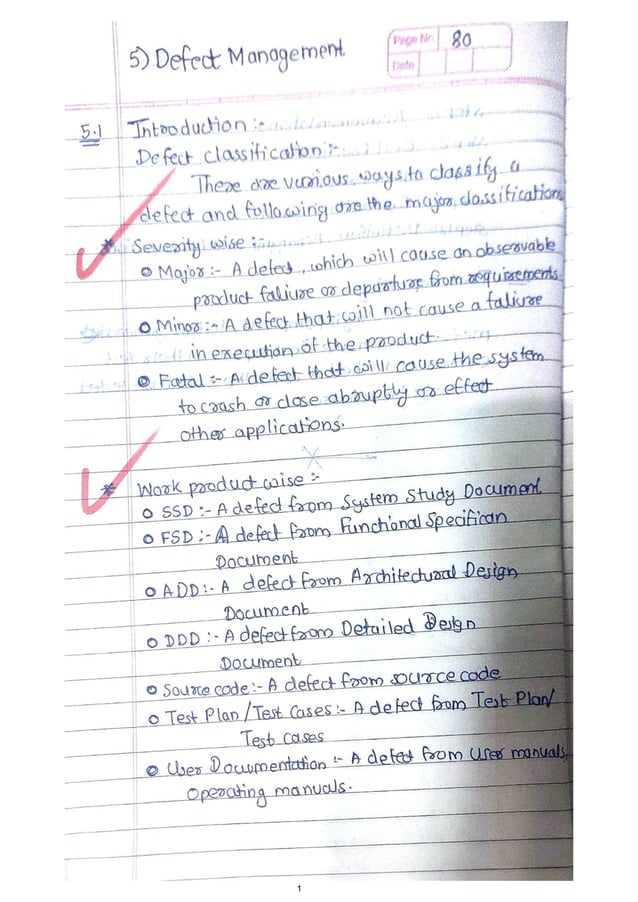 Page No. 80
Date
5) Defect Management
5.1 Introduction :-
Defect classification :-
There are various ways to classify a
defect and following are the major classification
* Severity wise :-
o Major :- A defect, which will cause an observable
product faliure or departure from requirements.
o Minor :- A defect that will not cause a faliure
in execution of the product.
o Fatal :- A defect that will cause the system
to crash or close abruptly or effect
other applications.
* Work product wise :-
o SSD :- A defect from System Study Document.
o FSD :- A defect from Functional Specifican
Document
o ADD :- A defect from Architectural Design
Document
o DDD :- A defect from Detailed Design
Document
o Source code :- A defect from source code
o Test Plan / Test Cases :- A defect from Test Plan/
Test cases
o User Documentation :- A defect from User manuals
Operating manuals.
1